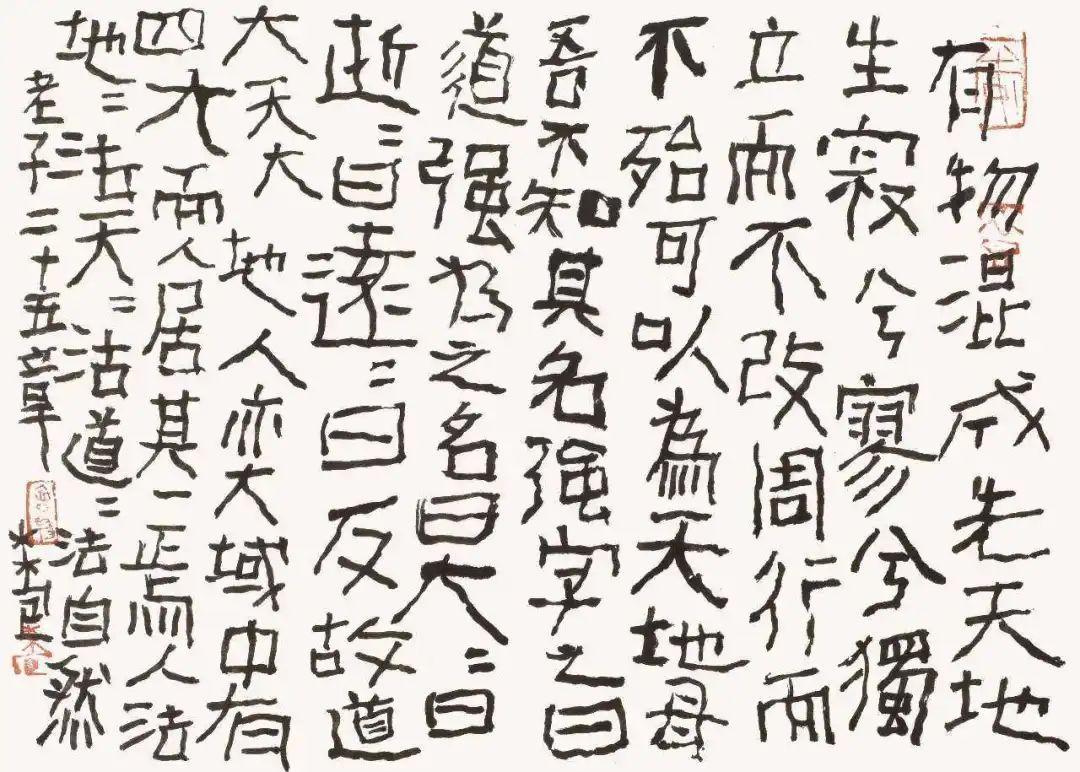 有物混成先天地
生寂兮寥兮獨
立而不改周行而
不殆可以為天地母
吾不知其名强字之曰
道强為之名曰大〻曰
逝〻曰遠〻曰反故道
大天大地人亦大域中有
四大而人居其一焉人法
地〻法天〻法道〻法自然
老子二十五章